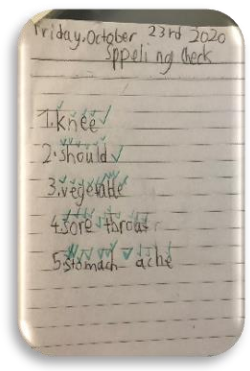 Friday, October 23rd 2020
Sppeling check
1. knee
2. should
3. vegetable
4. sore throat
5. stomach ache